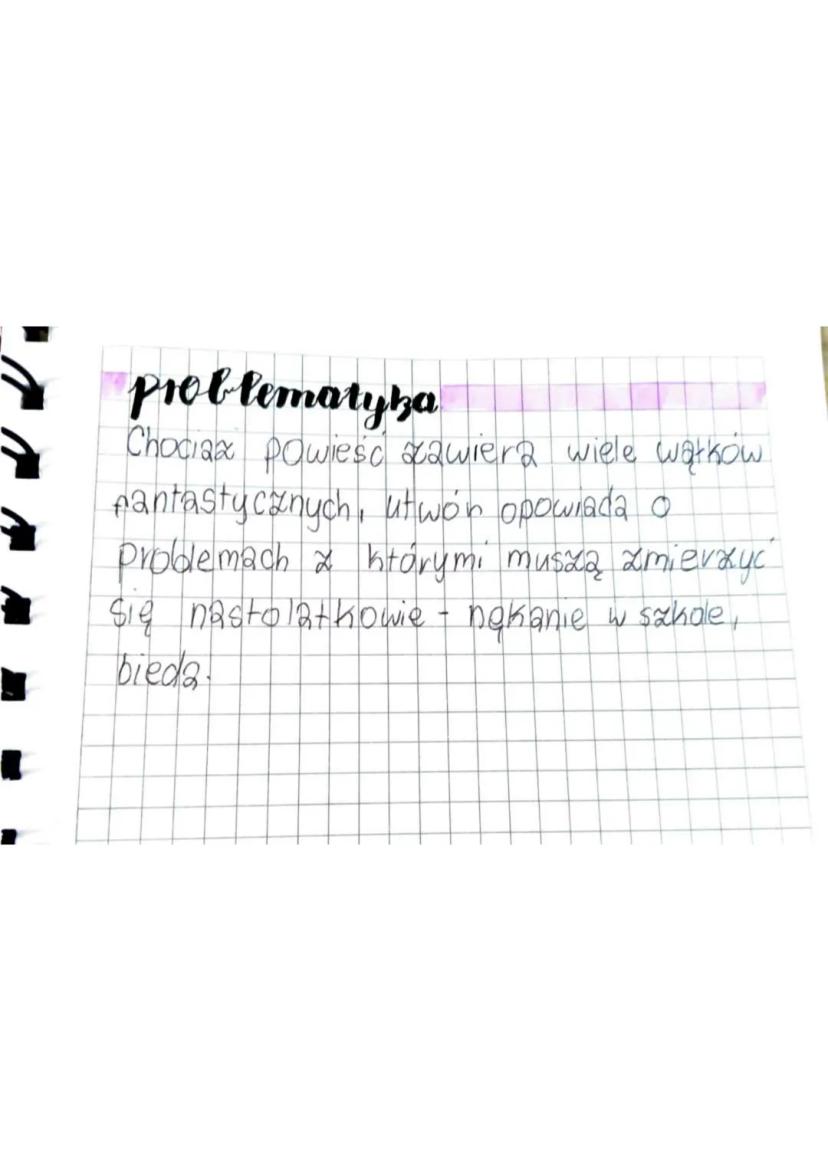 problematyka
Chociaż powieść zawiera wiele wątków
fantastycznych, utwór opowiada o
problemach z którymi muszą zmierzyć
się nastolatkowie - nękanie w szkole,
bieda.